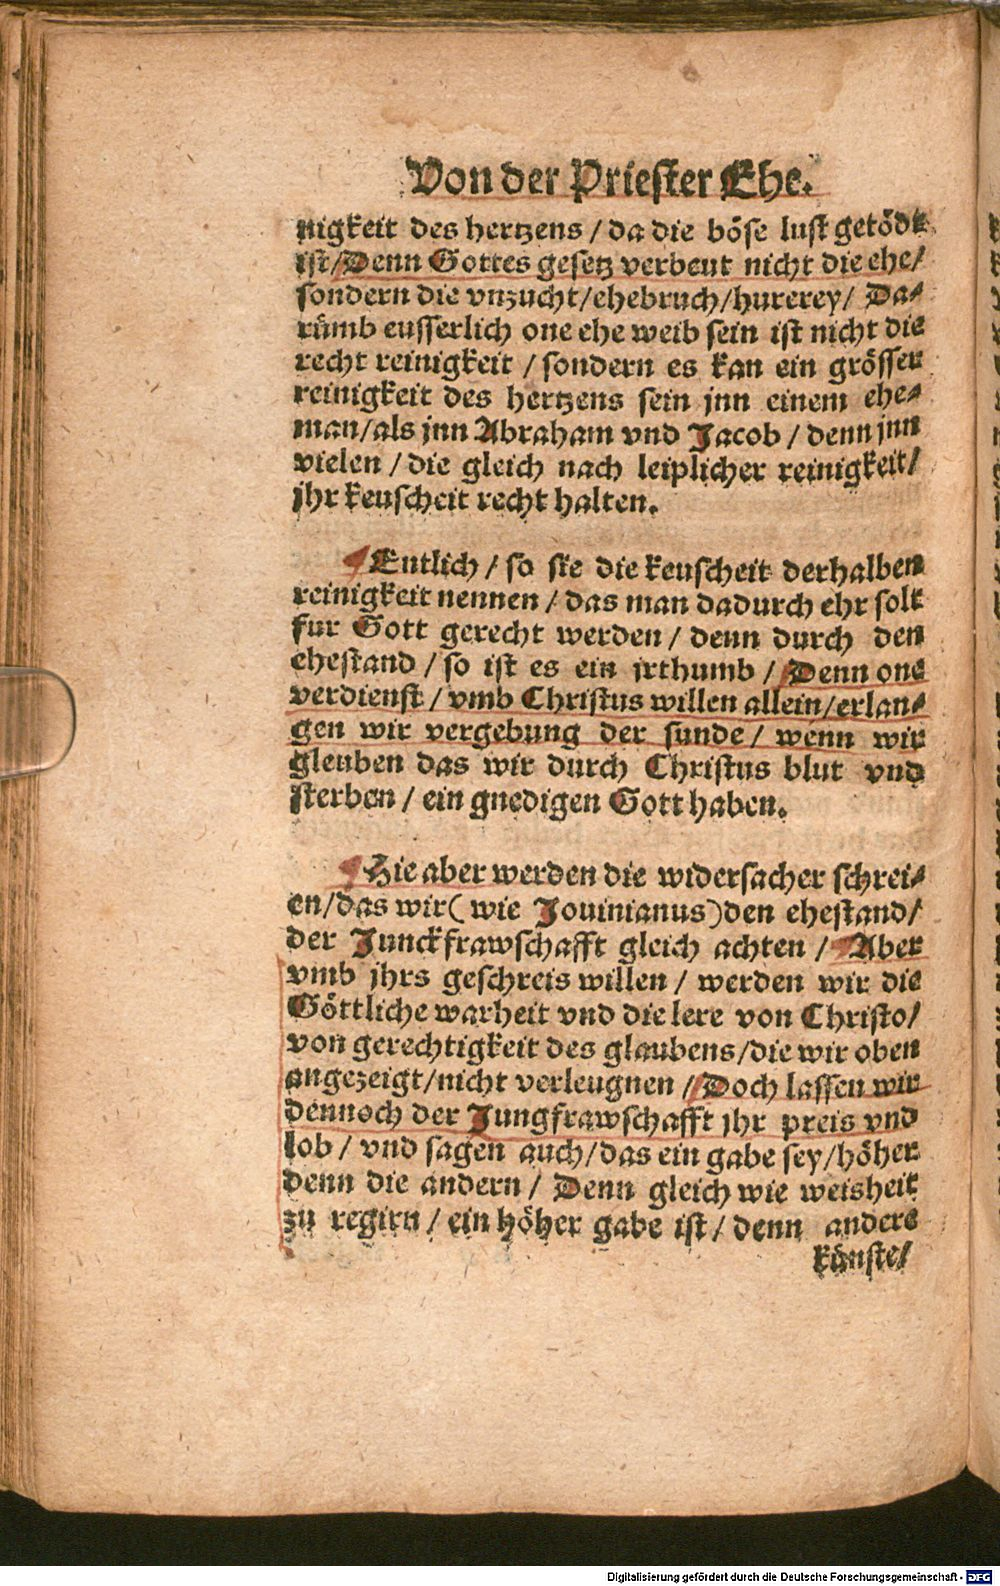 Von der Priester Ehe.
nigkeit des hertzens / da die böse lust getödt
ist / Denn Gottes gesetz verbeut nicht die ehe /
sondern die vnzucht / ehebruch / hurerey / Da⸗
rümb eusserlich one ehe weib sein ist nicht die
recht reinigkeit / sondern es kan ein grösser
reinigkeit des hertzens sein jnn einem ehe⸗
man / als jnn Abraham vnd Jacob / denn jnn
vielen / die gleich nach leiplicher reinigkeit /
jhr keuscheit recht halten.
Entlich / so sie die keuscheit derhalben
reinigkeit nennen / das man dadurch ehr solt
fur Gott gerecht werden / denn durch den
ehestand / so ist es ein jrthumb / Denn one
verdienst / vmb Christus willen allein / erlan⸗
gen wir vergebung der sunde / wenn wir
gleuben das wir durch Christus blut vnd
sterben / ein gnedigen Gott haben.
Hie aber werden die widersacher schrei⸗
en / das wir ( wie Jouinianus ) den ehestand /
der Junckfrawschafft gleich achten / Aber
vmb jhrs geschreis willen / werden wir die
Göttliche warheit vnd die lere von Christo /
von gerechtigkeit des glaubens / die wir oben
angezeigt / nicht verleugnen / Doch lassen wir
dennoch der Jungfrawschafft jhr preis vnd
lob / vnd sagen auch / das ein gabe sey / höher
denn die andern / Denn gleich wie weisheit
zu regirn / ein höher gabe ist / denn anders
künste /
Digitalisierung gefördert durch die Deutsche Forschungsgemeinschaft - DFG